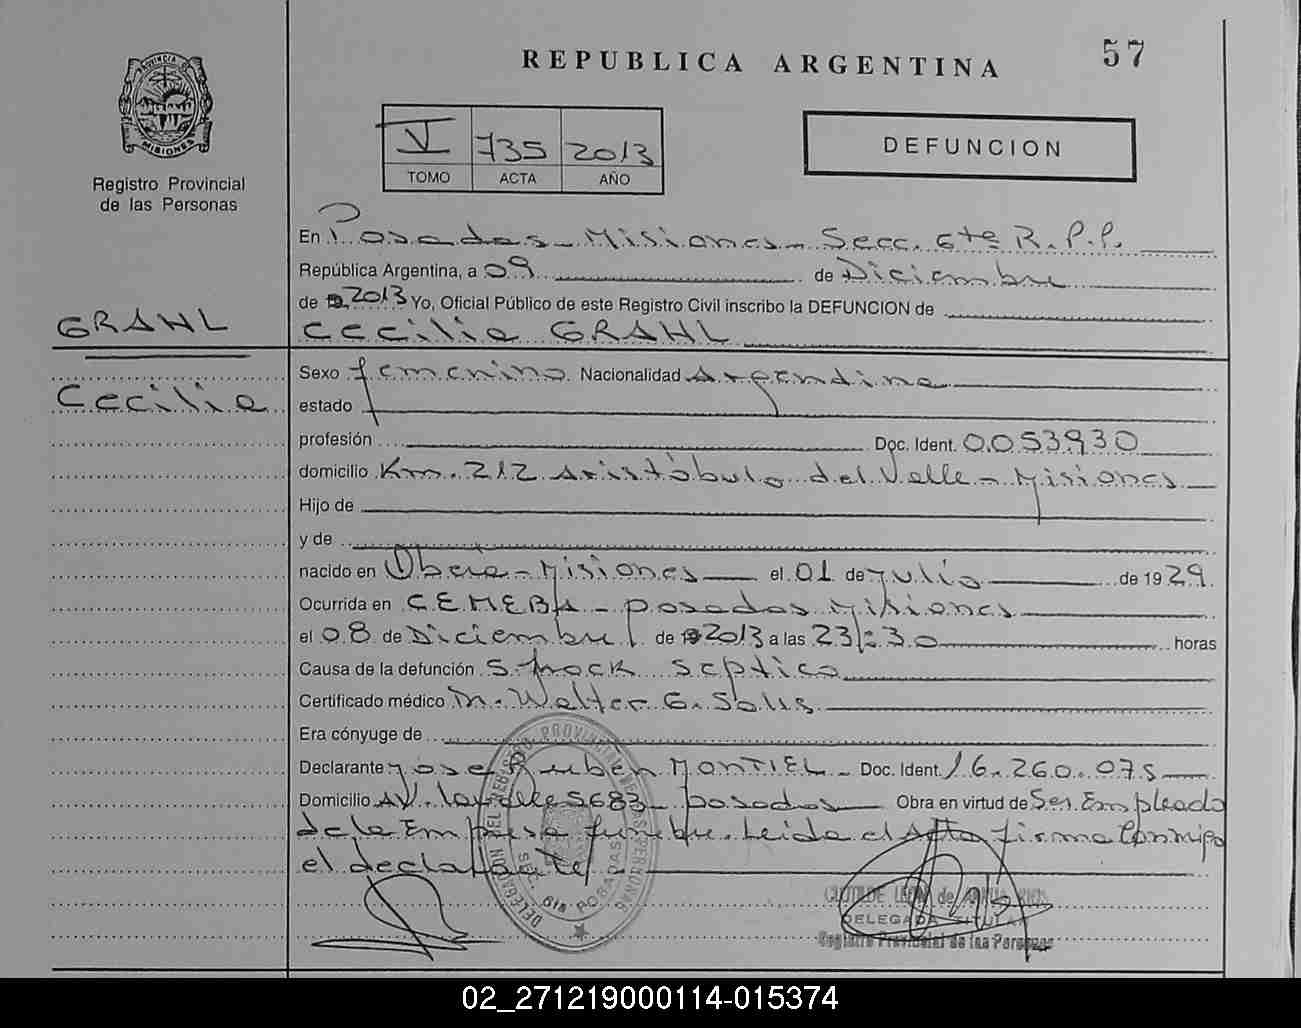 57
REPUBLICA ARGENTINA
PROVINCIA DE
MISIONES
Registro Provincial
de las Personas
V 735 2013
TOMO ACTA AÑO
DEFUNCION
En Posadas - Misiones - Secc. 6ta R.P.P.
República Argentina, a 09 de Diciembre
de 2013 Yo, Oficial Público de este Registro Civil inscribo la DEFUNCION de
GRAHL
Cecilia GRAHL
Cecilia
Sexo femenino Nacionalidad Argentina
estado
profesión Doc. Ident. 0.053.930
domicilio Km. 212 Aristóbulo del Valle - Misiones
Hijo de
y de
nacido en Obera - Misiones el 01 de Julio de 1929
Ocurrida en CEMEBA - posadas Misiones
el 08 de Diciembre de 2013 a las 23:30 horas
Causa de la defunción Shock septico
Certificado médico Dr. Walter G. Solis
Era cónyuge de
Declarante Jose Ruben MONTIEL - Doc. Ident. 16.260.075
Domicilio AV. Lavalle 5683 - posadas Obra en virtud de Ser Empleado
de la Empresa funebre. Leida el Acta firma Conmigo
el declarante
DELEGADA TITULAR
Registro Provincial de las Personas
02_271219000114-015374